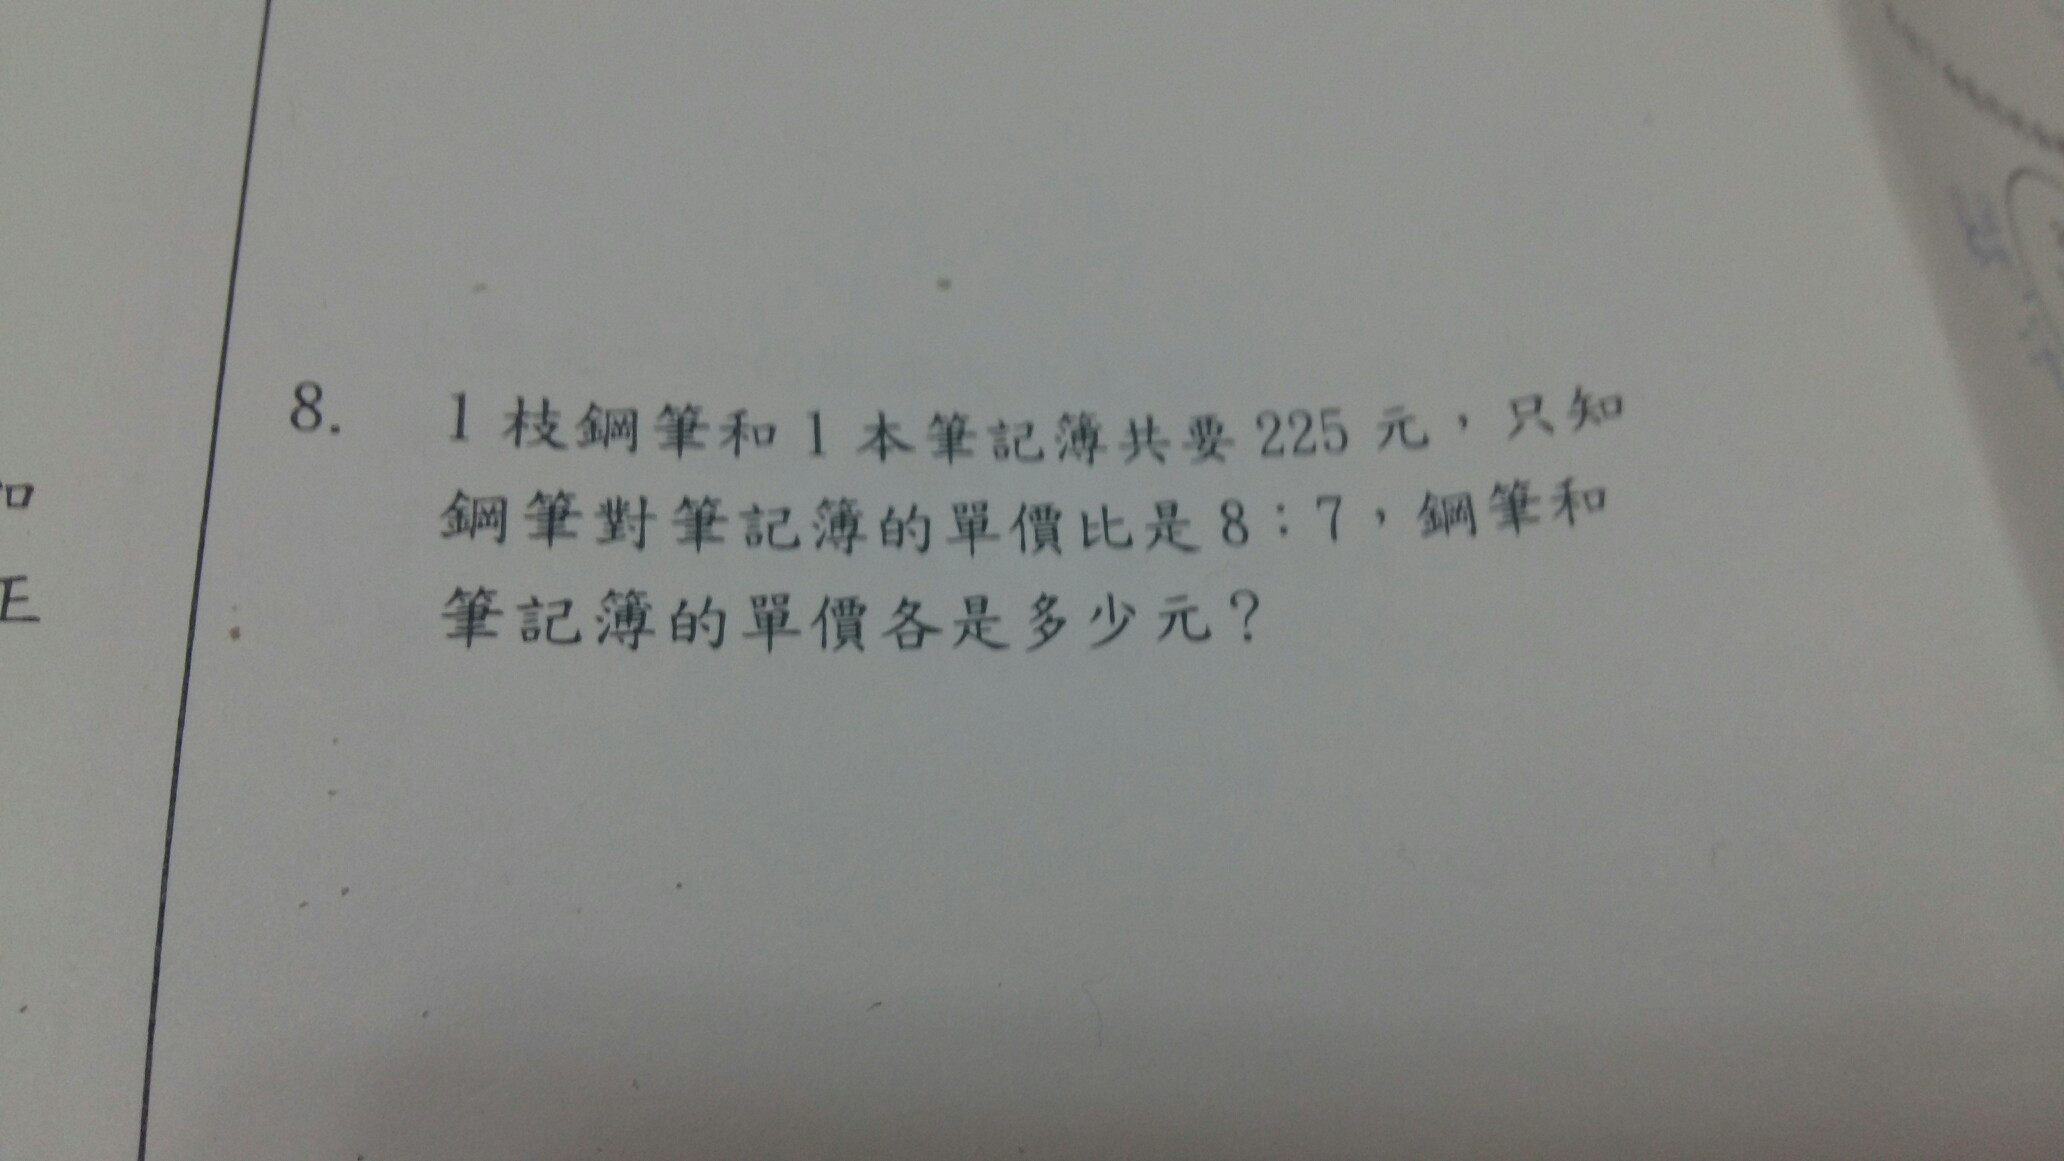 8. 1枝鋼筆和1本筆記簿共要225元，只知
鋼筆對筆記簿的單價比是8：7，鋼筆和
筆記簿的單價各是多少元？